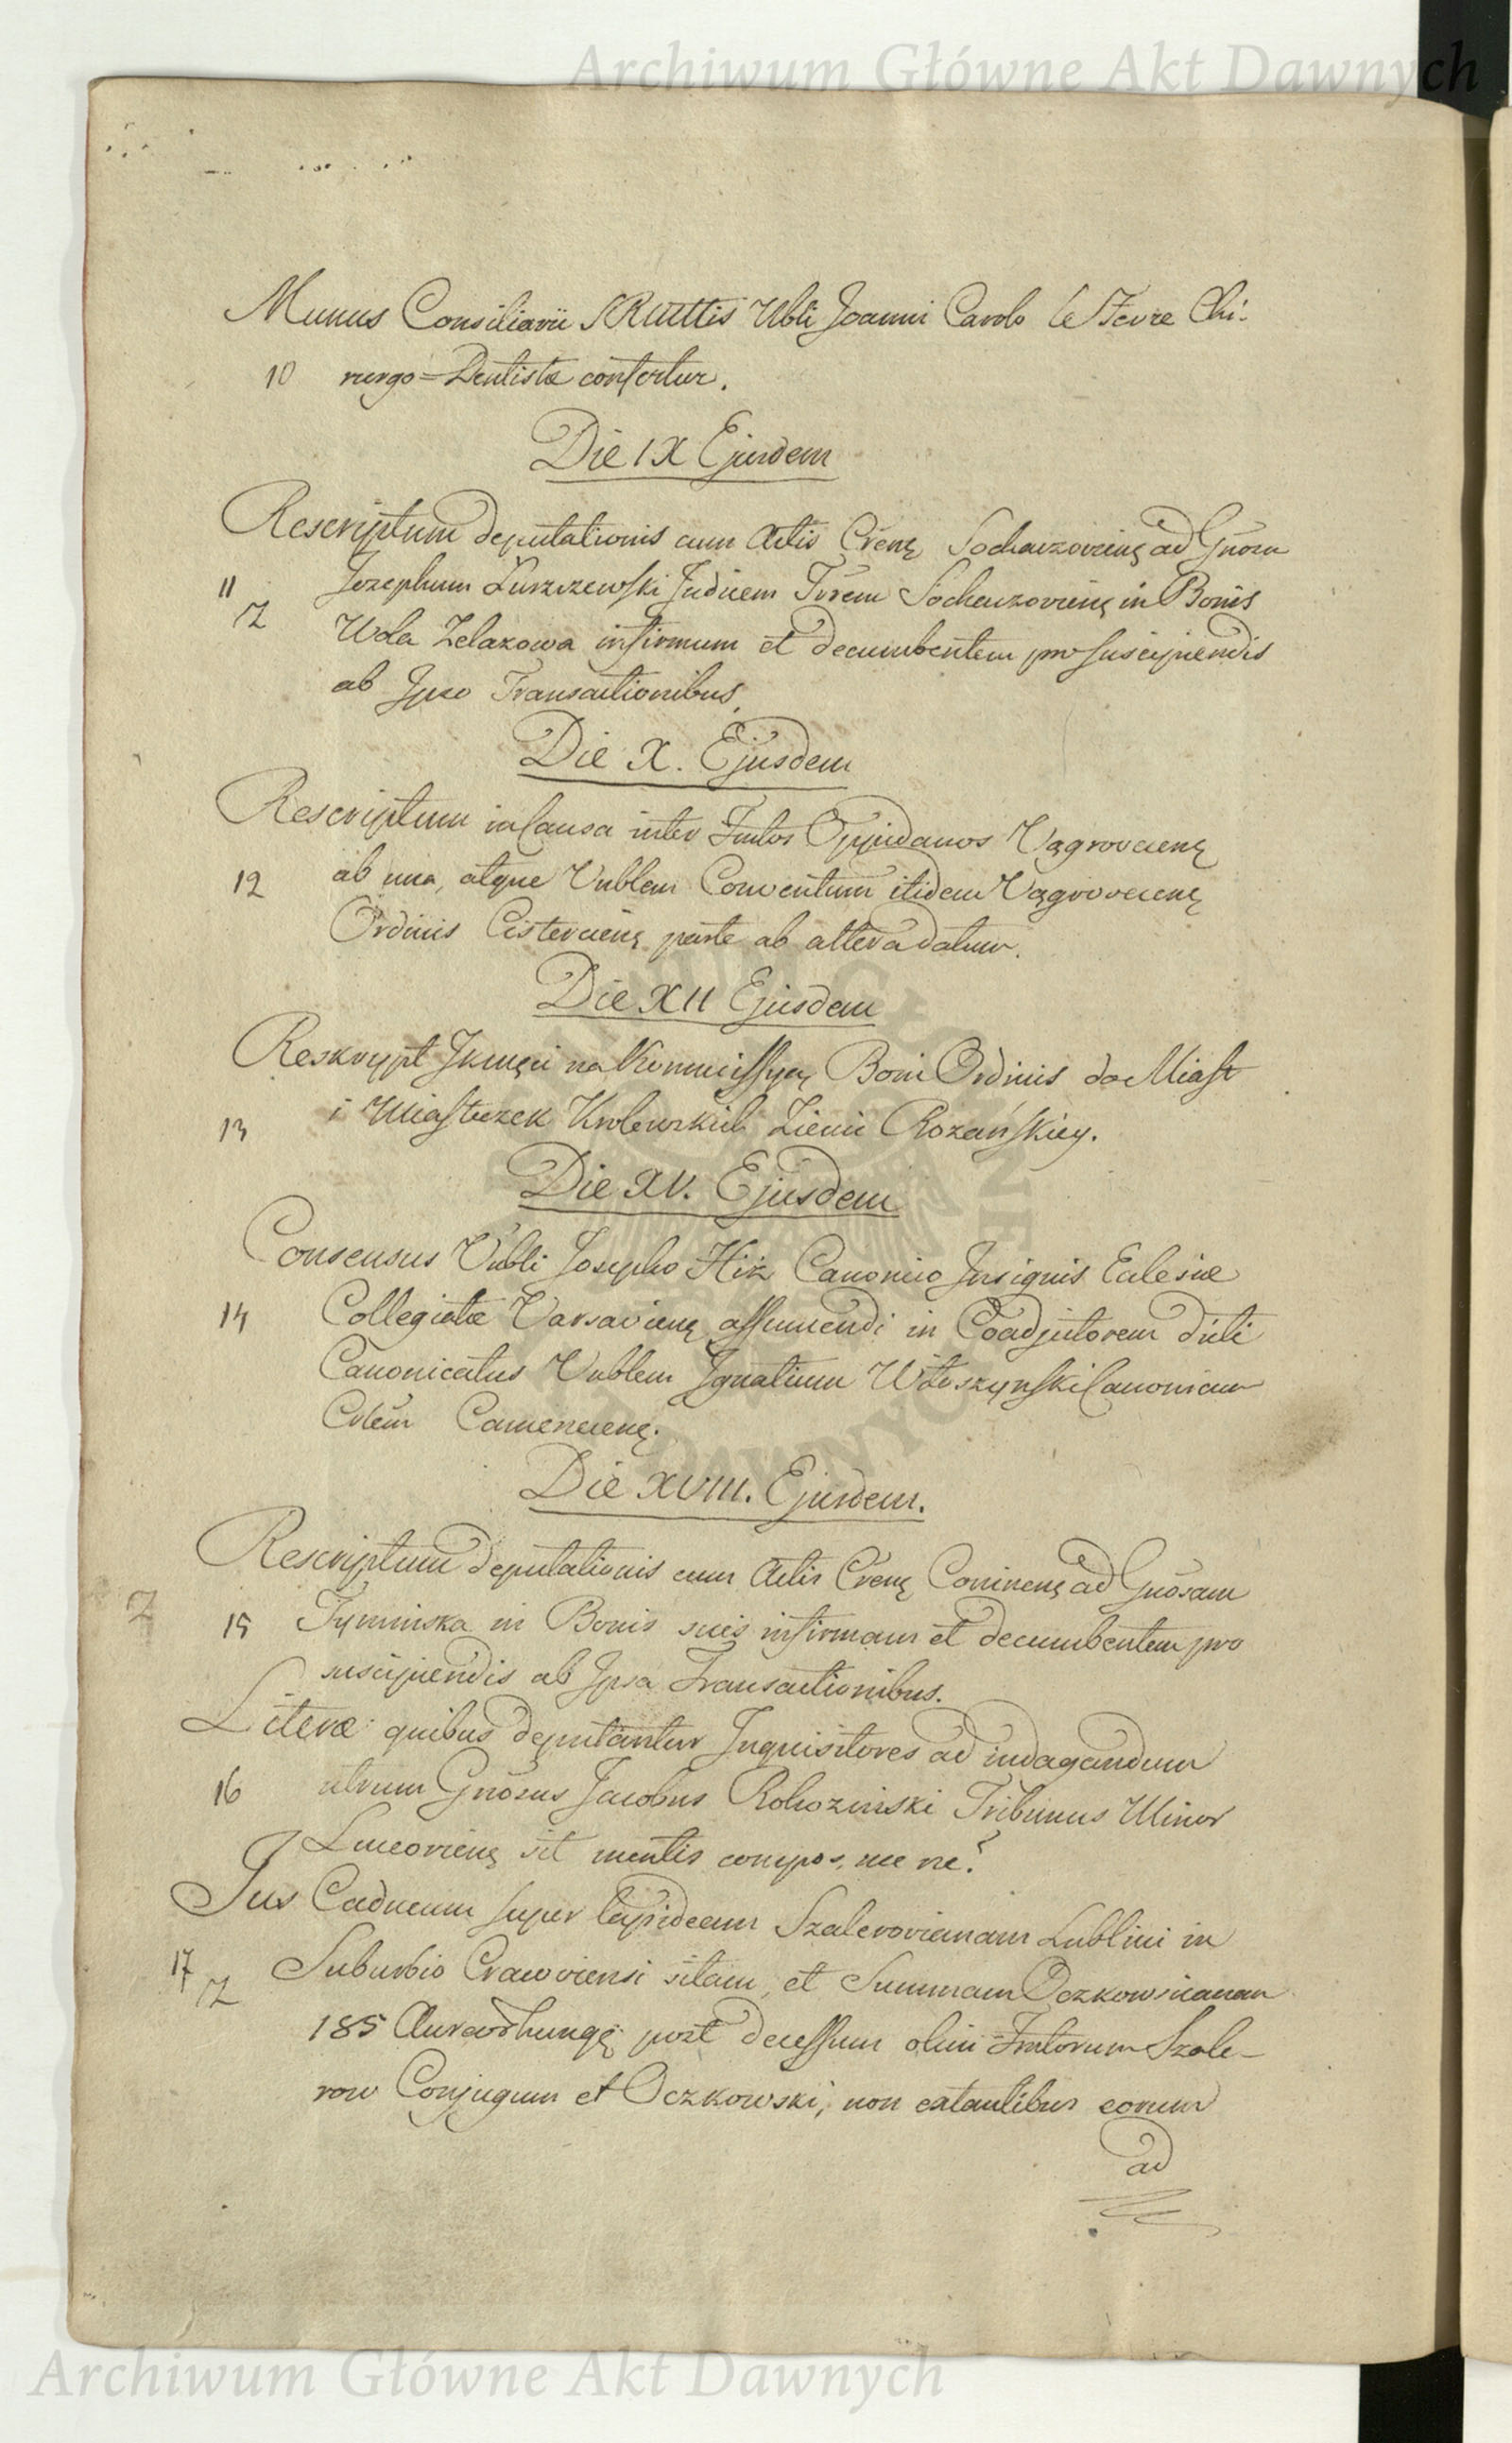 Archiwum Główne Akt Dawnych
Munus Consiliarii SRMttis Nbli Joanni Carolo le Fevre Chi-
10 rurgo=Dentistæ confertur.
Die IX Ejusdem
Rescriptum deputationis cum Actis Cren̄ę Sochaczovien̄ę ad Gn̄osu
11 Josephum Łuszczewski Judicem Trēm Sochaczovien̄ę in Bonis
Z Wola Zelazowa infirmum et decumbentem pro suscipiendis
ab Ipso Transactionibus.
Die X. Ejusdem
Rescriptum in Causa inter Fmtos Oppidanos Vągrovcien̄ę
12 ab una, atque Vnblem Conventum itidem Vągrovecien̄ę
Ordinis Cistercien̄ę parte ab altera datum.
Die XII Ejusdem
Reskrypt Jkmęci na Kommissyą Boni Ordinis do Miast
13 i Miasteczek Krolewskich Ziemi Rozańskiey.
Die XV. Ejusdem
Consensus Vnbli Josepho Hiż Canonico Insignis Eclesiæ
14 Collegiatæ Varsavien̄ę assumendi in Coadjutorem dicti
Canonicatus Vnblem Ignatium Włoszynski Canonicum
Cālem Camenecen̄ę.
Die XVIII. Ejusdem.
Rescriptum deputationis cum Actis Cren̄ę Coninen̄ę ad Gn̄osam
Z 15 Tyminska in Bonis suis infirmam et decumbentem pro
suscipiendis ab Ipsa Transactionibus.
Literæ quibus deputantur Inquisitores ad indagandum
16 utrum Gn̄osus Jacobus Rohozinski Tribunus Minor
Luceorien̄ę sit mentis compos, nec ne?
Jus Caducum super lapideam Szalerovianam Lublini in
17 Suburbio Cracoviensi sitam, et Summam Oczkowsicanam
Z 185 Aureor Hungę post decessum olim Fmtorum Szale-
row Conjugum et Oczkowski, non extantibus eorum
ad
Archiwum Główne Akt Dawnych